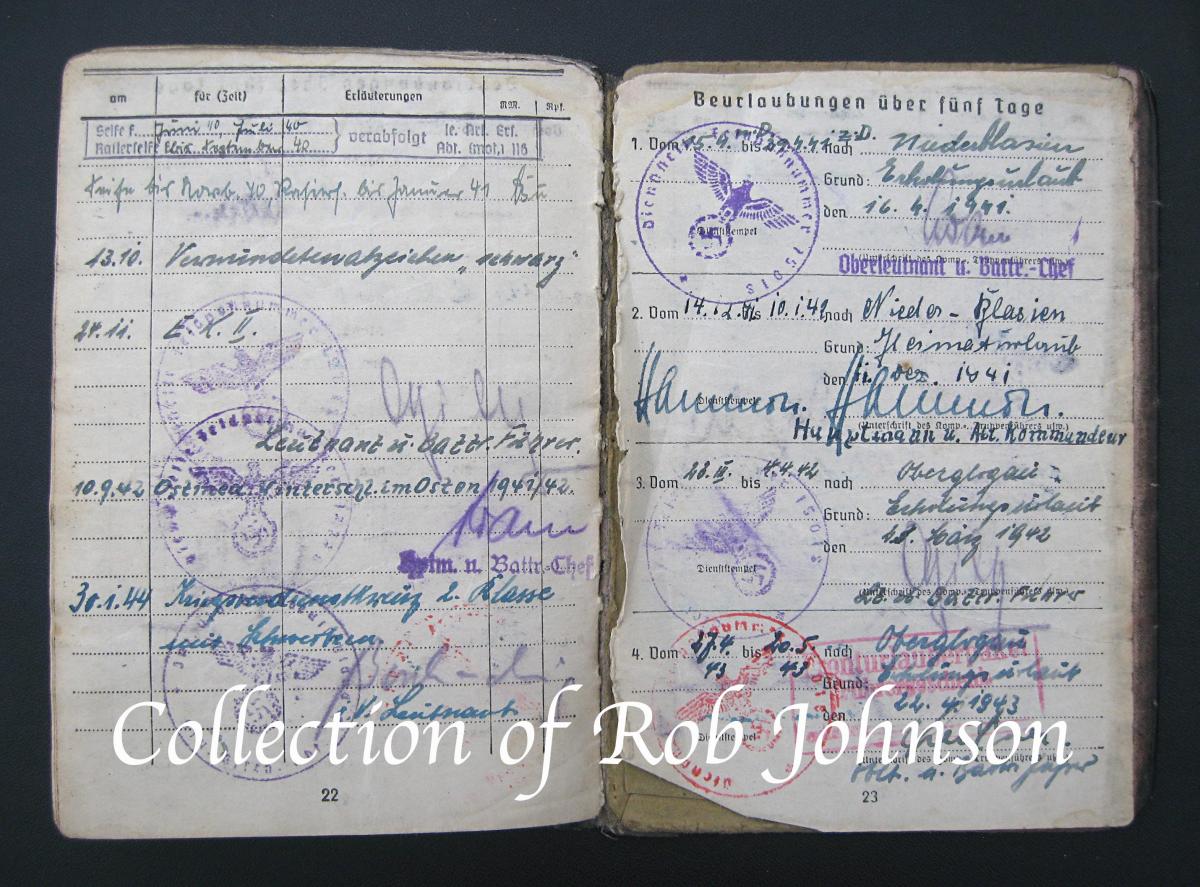 am für (Zeit) Erläuterungen RM. Rpf.
Seife f. Juni 40 Juli 40
Rasierseife bis September 40 verabfolgt le. Art. Ers.
Abt. (mot.) 116
Seife bis Novb. 40, Rasiers. bis Januar 41
13.10. Verwundetenabzeichen „schwarz"
24.11. E.K. II.
Leutnant u. Battr. Führer.
10.9.42 Ostmed. Winterschl. im Osten 1941/42.
Hptm. u. Battr.-Chef
30.1.44 Kriegsverdienstkreuz 2. Klasse
mit Schwertern
Leutnant
22
Beurlaubungen über fünf Tage
1. Vom 15.4. bis nach
Grund: Erholungsurlaub
den 16.4.1941.
Dienststempel
Dienststelle Feldpostnummer 15015
Oberleutnant u. Battr.-Chef
2. Vom 14.12.41 bis 10.1.42 nach Nieder-Blasien
Grund: Heimaturlaub
den 11. Dez. 1941
Dienststempel
(Unterschrift des Komp.-, Truppenführers usw.)
Hauptmann u. Abt. Kommandeur
3. Vom 28.III. bis 4.4.42 nach Oberglogau
Grund: Erholungsurlaub
den 28. März 1942
Dienststempel
(Unterschrift des Komp.-, Truppenführers usw.)
Battr. Führer
4. Vom 27.4. 43 bis 20.5 43 nach Oberglogau
Grund: Erholungsurlaub
den 22.4.1943
Dienststempel
23
Collection of Rob Johnson